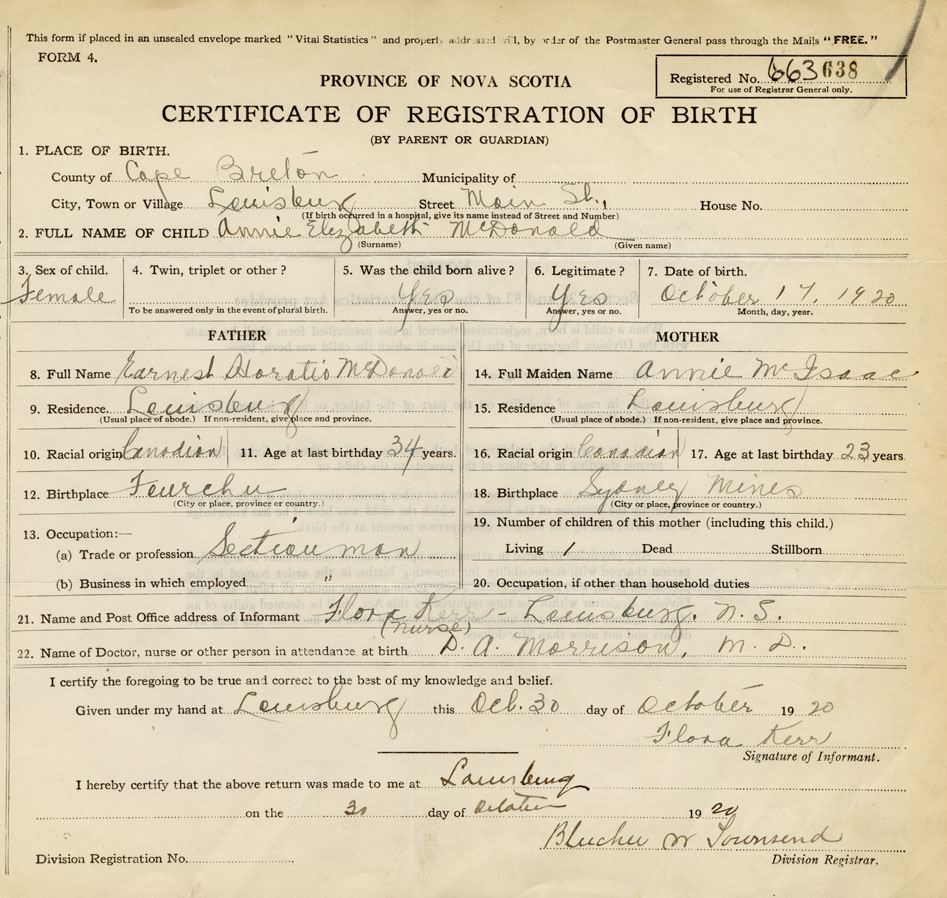 This form if placed in an unsealed envelope marked "Vital Statistics" and properly addressed will, by order of the Postmaster General pass through the Mails "FREE."
FORM 4.
PROVINCE OF NOVA SCOTIA
Registered No. 663638
For use of Registrar General only.
CERTIFICATE OF REGISTRATION OF BIRTH
(BY PARENT OR GUARDIAN)
1. PLACE OF BIRTH.
County of Cape Breton Municipality of
City, Town or Village Louisburg Street Main St., House No.
(If birth occurred in a hospital, give its name instead of Street and Number)
2. FULL NAME OF CHILD Annie Elizabeth McDonald
(Surname) (Given name)
3. Sex of child. 4. Twin, triplet or other ? 5. Was the child born alive ? 6. Legitimate ? 7. Date of birth.
Female Yes Yes October 17, 1920
To be answered only in the event of plural birth. Answer, yes or no. Answer, yes or no. Month, day, year.
FATHER MOTHER
8. Full Name Earnest Horatio McDonald 14. Full Maiden Name Annie McIsaac
9. Residence. Louisburg 15. Residence Louisburg
(Usual place of abode.) If non-resident, give place and province. (Usual place of abode.) If non-resident, give place and province.
10. Racial origin Canadian 11. Age at last birthday 34 years. 16. Racial origin Canadian 17. Age at last birthday 23 years
12. Birthplace Fourchu 18. Birthplace Sydney Mines
(City or place, province or country.) (City or place, province or country.)
13. Occupation:— 19. Number of children of this mother (including this child.)
(a) Trade or profession Sectionman Living 1 Dead Stillborn
(b) Business in which employed " 20. Occupation, if other than household duties
21. Name and Post Office address of Informant Flora Kerr - Louisburg, N. S.
(Nurse)
22. Name of Doctor, nurse or other person in attendance at birth D. A. Morrison, M. D.
I certify the foregoing to be true and correct to the best of my knowledge and belief.
Given under my hand at Louisburg this Oct. 30 day of October 19 20
Flora Kerr
Signature of Informant.
I hereby certify that the above return was made to me at Louisburg
on the 30 day of October 19 20
Blucher W Townsend
Division Registration No. Division Registrar.